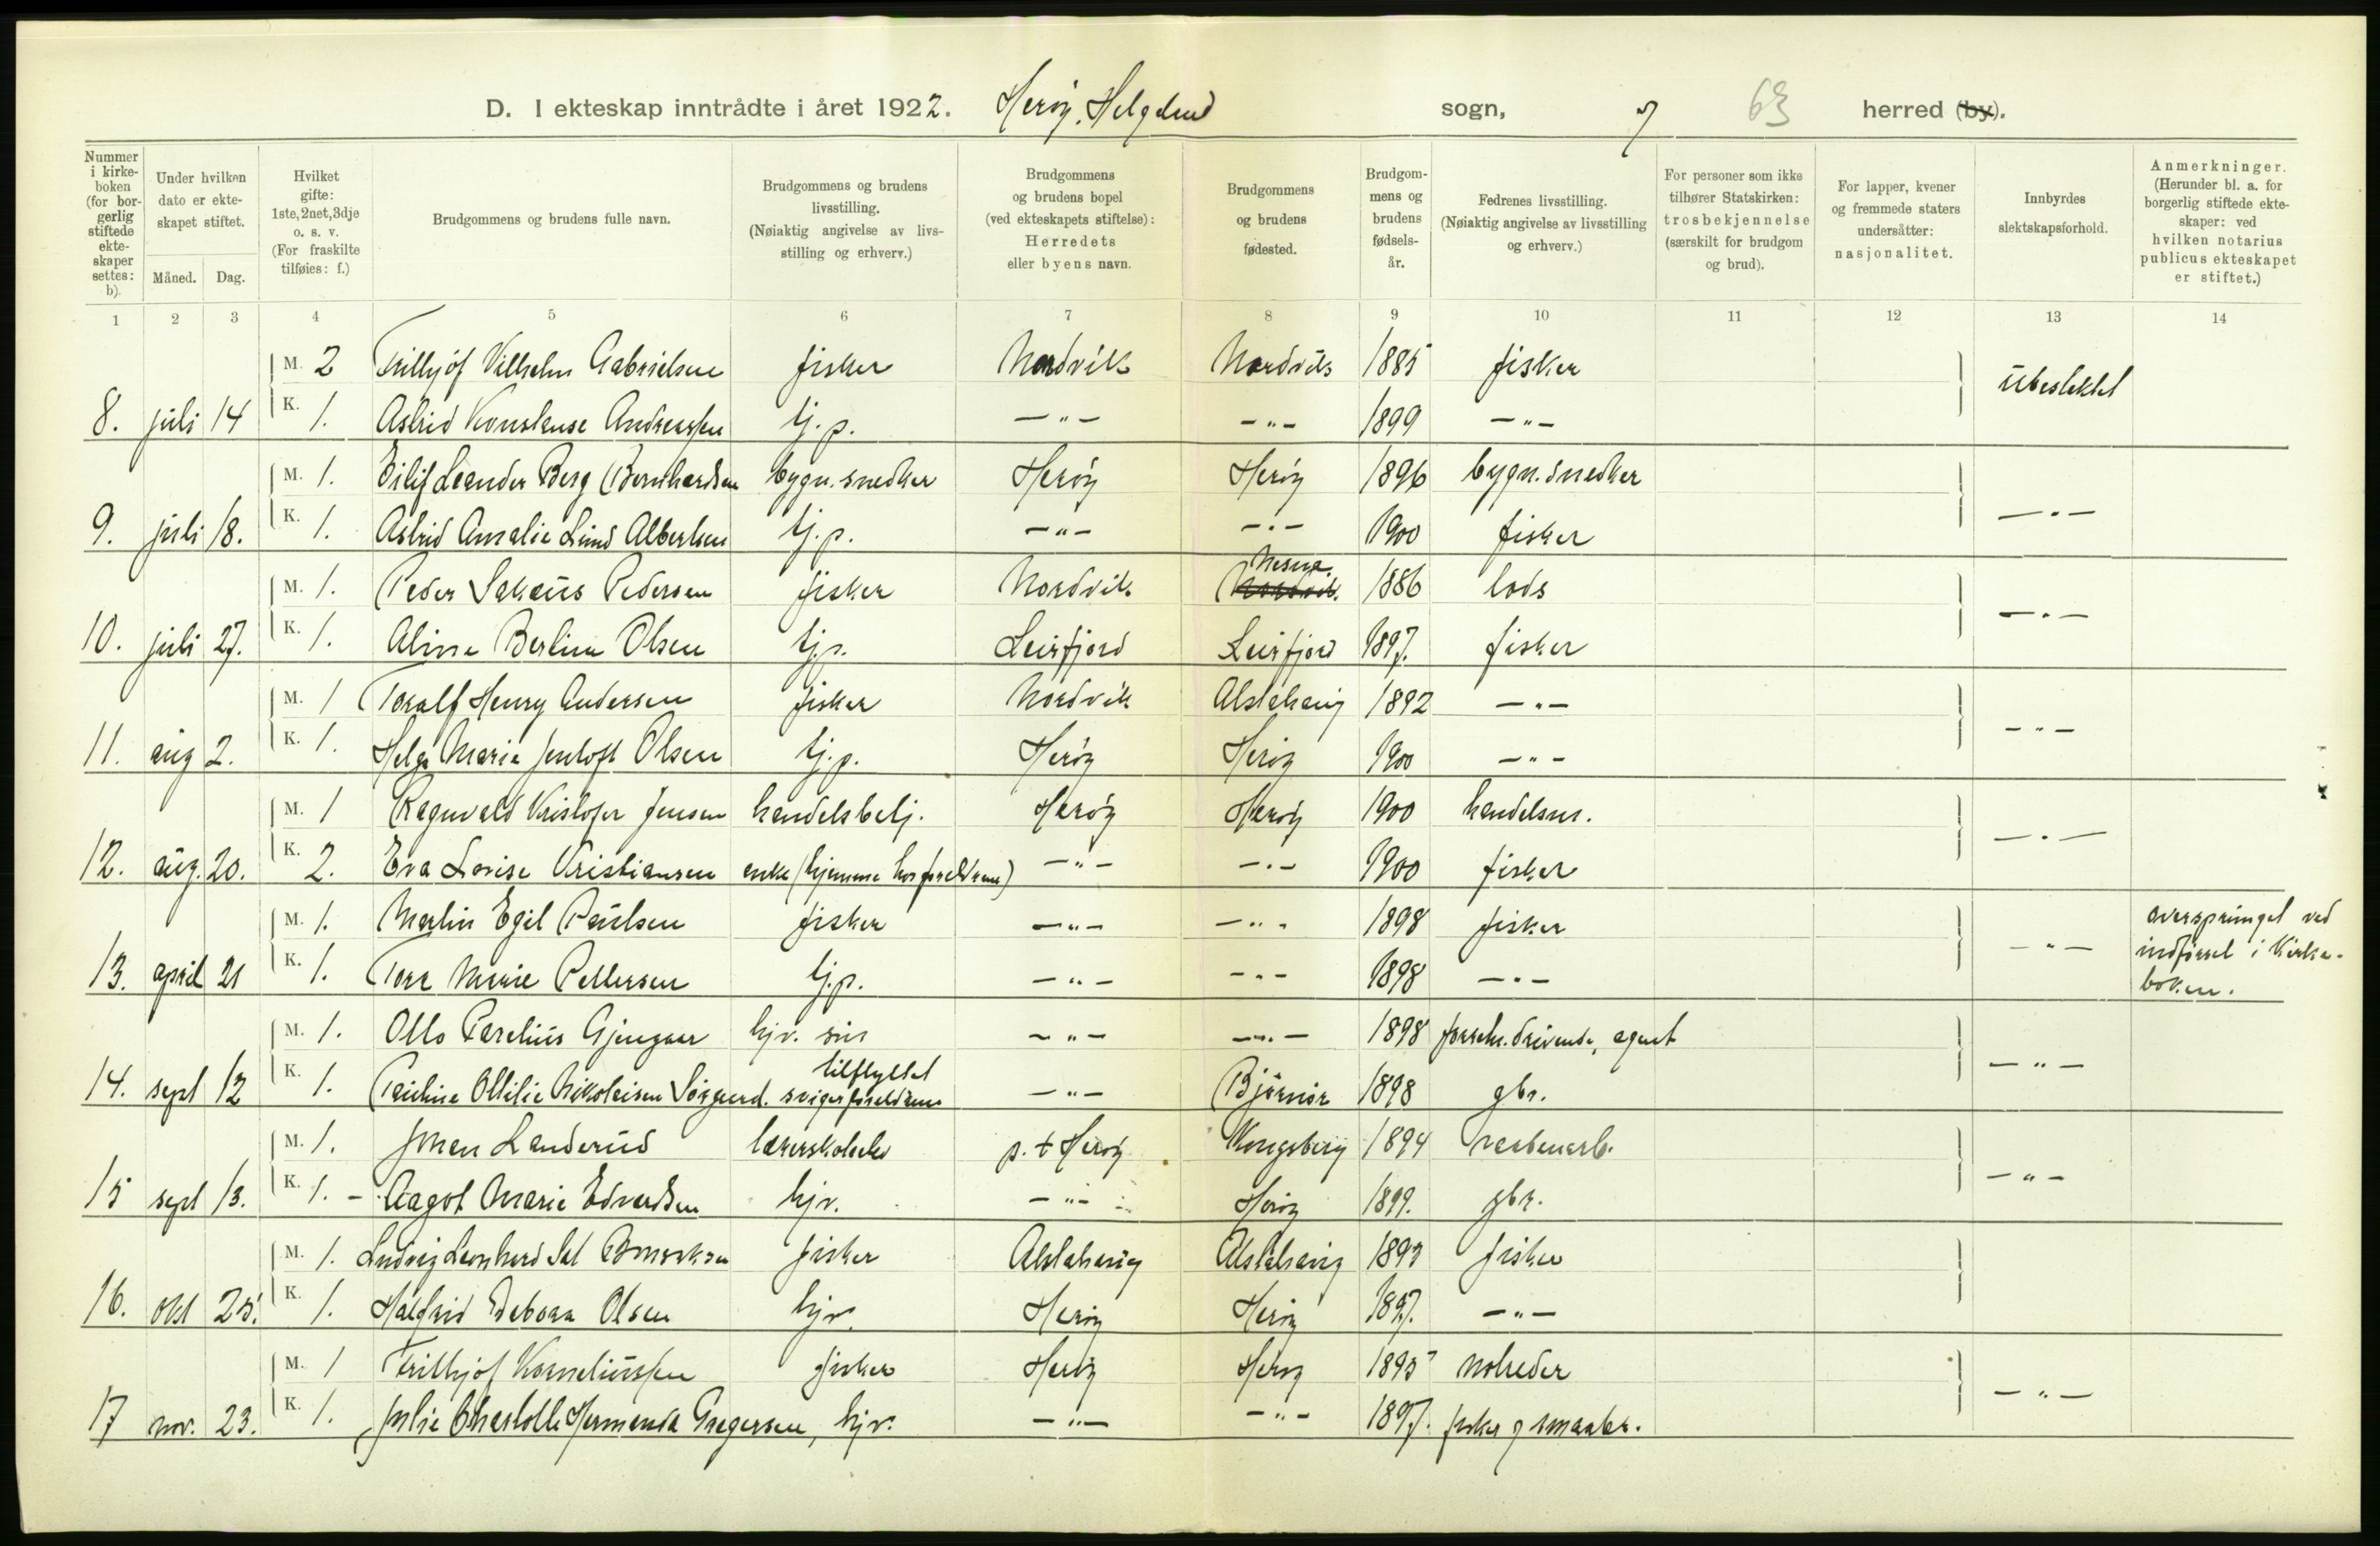 D. I ekteskap inntrådte i året 1922. Herøy, Helgeland sogn, og 63 herred (by).
Nummer i kirkeboken (for borgerlig stiftede ekteskaper settes: b).
Under hvilken dato er ekteskapet stiftet.
Måned. Dag.
Hvilket gifte: 1ste, 2net, 3dje o. s. v. (For fraskilte tilføies: f.)
Brudgommens og brudens fulle navn.
Brudgommens og brudens livsstilling. (Nøiaktig angivelse av livsstilling og erhverv.)
Brudgommens og brudens bopel (ved ekteskapets stiftelse): Herredets eller byens navn.
Brudgommens og brudens fødested.
Brudgommens og brudens fødselsår.
Fedrenes livsstilling. (Nøiaktig angivelse av livsstilling og erhverv.)
For personer som ikke tilhører Statskirken: trosbekjennelse (særskilt for brudgom og brud).
For lapper, kvener og fremmede staters undersåtter: nasjonalitet.
Innbyrdes slektskapsforhold.
Anmerkninger. (Herunder bl. a. for borgerlig stiftede ekteskaper: ved hvilken notarius publicus ekteskapet er stiftet.)
1 2 3 4 5 6 7 8 9 10 11 12 13 14
M. 2 Frithjof Vilhelm Gabrielsen fisker Nordvik Nordvik 1885 fisker ubeslektet
8. juli 14 K. 1. Astrid Konstanse Andreassen tj.p. —"— —"— 1899 —"—
M. 1. Eilif Leander Berg (Bernhardsen bygn. snedker Herøy Herøy 1896 bygn. snedker
9. juli 18. K. 1. Astrid Amalie Lund Albertsen tj.p. —"— —"— 1900 fisker —"—
M. 1. Peder Sakæus Pedersen fisker Nordvik Nesna 1886 lods —"—
10. juli 27. K. 1. Alma Berline Olsen tj.p. Leirfjord Leirfjord 1897. fisker
M. 1 Toralf Henry Andersen fisker Nordvik Alstahaug 1892 —"—
11. aug 2. K. 1. Helga Marie Jentoft Olsen tj.p. Herøy Herøy 1900 —"— —"—
M. 1 Ragnvald Kristofer Jensen handelsbetj. Herøy Herøy 1900 handelsm. —"—
12. aug. 20. K. 2. Eva Lovise Kristiansen enke (hjemme hos foreldrene) —"— —"— 1900 fisker
M. 1. Martin Egil Paulsen fisker —"— —"— 1898 fisker —"— oversprunget ved indførsel i kirkeboken.
13. april 21 K. 1. Tora Marie Pettersen tj.p. —"— —"— 1898 —"—
M. 1. Otto Parelius Gjengaar hjv. søn —"— —"— 1898 forretn. drivende, agent
14. sept 12 K. 1. Pauline Ottilie Nikolaisen Sørgaard. tilflyttet svigerforeldrene —"— Bjørnør 1898 gbr. —"—
M. 1. Johan Landerud lærerskoleelev p. t Herøy Kongsberg 1894
15 sept 13. K. 1. - Aagot Marie Edvardsen hjv. —"— Herøy 1899. gbr. —"—
M. 1. Ludvig Leonhard fisker Alstahaug Alstahaug 1893 fisker
16. okt 25. K. 1. Halfrid Debora Olsen hjv. Herøy Herøy 1897. —"—
M. 1 Frithjof Korneliussen fisker Herøy Herøy 1895 notreder
17 nov. 23. K. 1. Julie Charlotte Hermanda Gregersen, hjv. —"— —"— 1897. fisker og smaabr. —"—